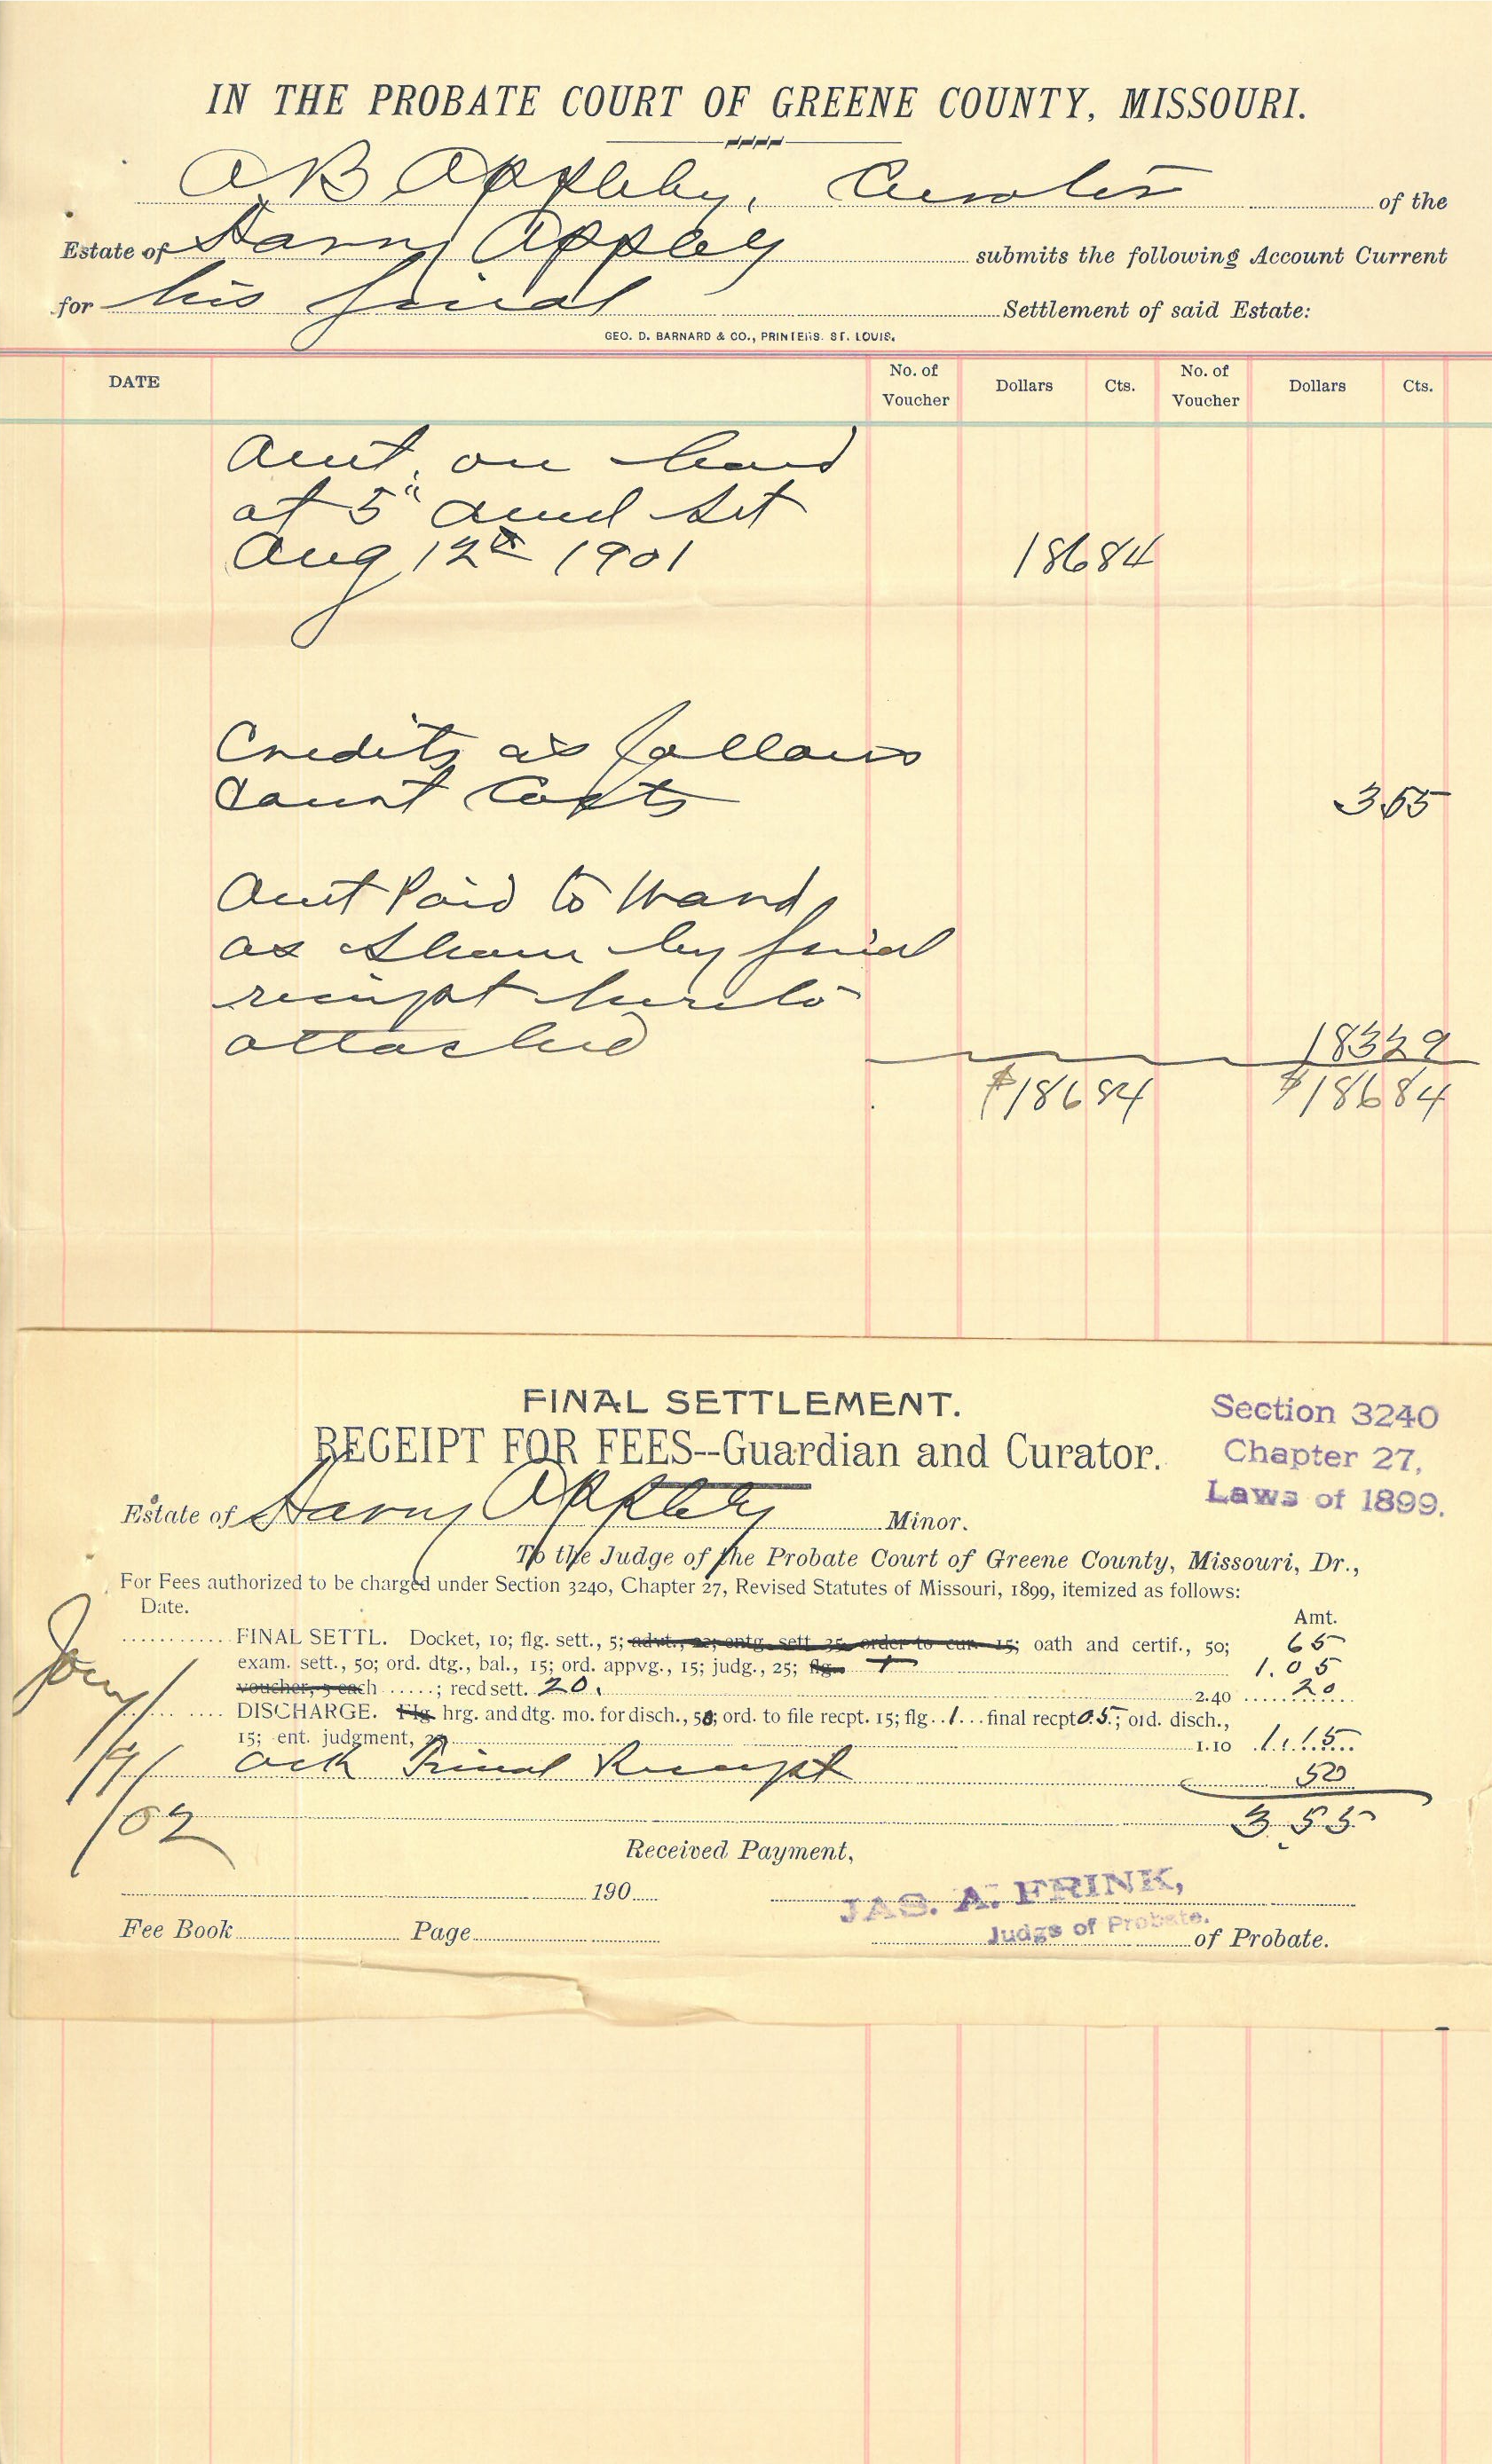 IN THE PROBATE COURT OF GREENE COUNTY, MISSOURI.
A B Appleby, Curator of the
Estate of Harry Appleby submits the following Account Current
for his final Settlement of said Estate:
GEO. D. BARNARD & CO., PRINTERS. ST. LOUIS.
DATE No. of Voucher Dollars Cts. No. of Voucher Dollars Cts.
Amt. on hand
at 5" Annl Set
Aug 12th 1901 186 84
Credits as follows
Court Costs 3 55
Amt Paid to Ward
as shown by final
receipt hereto
attached 183 29
$186 84 $186 84
FINAL SETTLEMENT.
RECEIPT FOR FEES--Guardian and Curator.
Section 3240
Chapter 27,
Laws of 1899.
Estate of Harry Appleby Minor.
To the Judge of the Probate Court of Greene County, Missouri, Dr.,
For Fees authorized to be charged under Section 3240, Chapter 27, Revised Statutes of Missouri, 1899, itemized as follows:
Date. Amt.
FINAL SETTL. Docket, 10; flg. sett., 5; advt., 22; entg. sett 35, order to cur. 15; oath and certif., 50; 65
exam. sett., 50; ord. dtg., bal., 15; ord. appvg., 15; judg., 25; flg. 1.05
voucher, 5 each .....; recd sett. 20. 2.40 20
DISCHARGE. Flg. hrg. and dtg. mo. for disch., 50; ord. to file recpt. 15; flg..1... final recpt 05; ord. disch.,
15; ent. judgment, 1.10 1.15
Ack Final Receipt 50
3.55
Jany
/9/
/02
Received Payment,
190
JAS. A. FRINK,
Judge of Probate.
Fee Book Page of Probate.